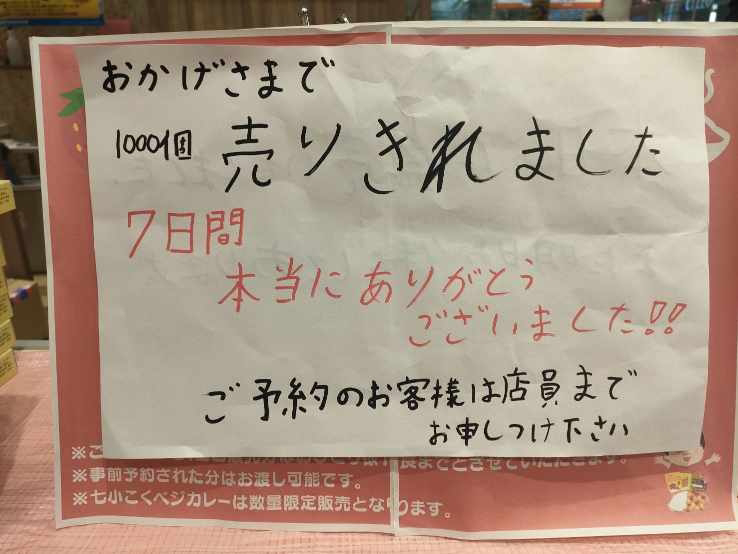 おかげさまで
1000個 売りきれました
7日間
本当にありがとう
ございました!!
ご予約のお客様は店員まで
お申しつけ下さい
※こ
長までとさせていただきます。
※事前予約された分はお渡し可能です。
※七小こくベジカレーは数量限定販売となります。